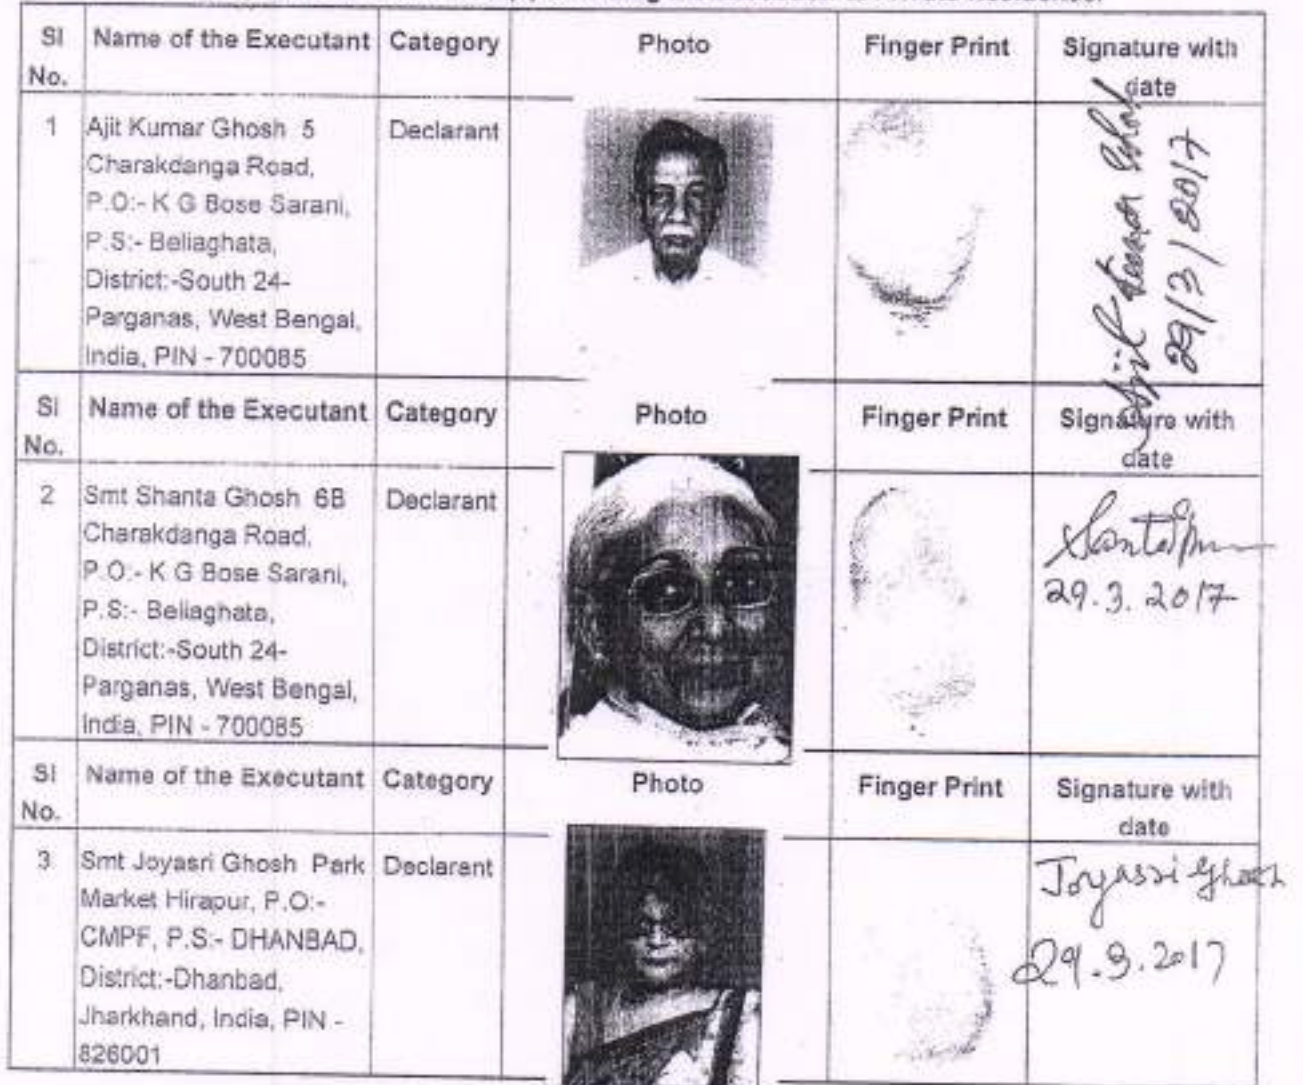 Sl No. Name of the Executant Category Photo Finger Print Signature with date
1 Ajit Kumar Ghosh 5 Declarant
Charakdanga Road,
P.O:- K G Bose Sarani,
P.S:- Beliaghata,
District:-South 24-
Parganas, West Bengal,
India, PIN - 700085
Ajit Kumar Ghosh
29/3/2017
Sl No. Name of the Executant Category Photo Finger Print Signature with date
2 Smt Shanta Ghosh 6B Declarant
Charakdanga Road,
P.O:- K G Bose Sarani,
P.S:- Beliaghata,
District:-South 24-
Parganas, West Bengal,
India, PIN - 700085
29.3.2017
Sl No. Name of the Executant Category Photo Finger Print Signature with date
3 Smt Joyasri Ghosh Park Declarant
Market Hirapur, P.O:-
CMPF, P.S:- DHANBAD,
District:-Dhanbad,
Jharkhand, India, PIN -
826001
Joyasri Ghosh
29.3.2017